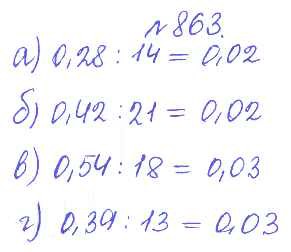 №863.
а) 0,28 : 14 = 0,02
б) 0,42 : 21 = 0,02
в) 0,54 : 18 = 0,03
г) 0,39 : 13 = 0,03